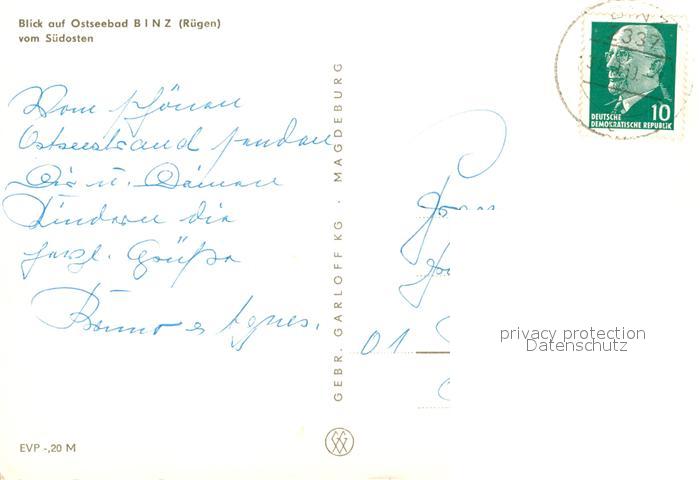 Blick auf Ostseebad BINZ (Rügen)
vom Südosten
Vom schönen
Ostseestrand senden
Dir u. Deinen
Kindern die
herzl. Grüße
Bruno & Agnes.
GEBR. GARLOFF KG · MAGDEBURG
BINZ
2337
10
DEUTSCHE
DEMOKRATISCHE REPUBLIK
01
privacy protection
Datenschutz
EVP -,20 M